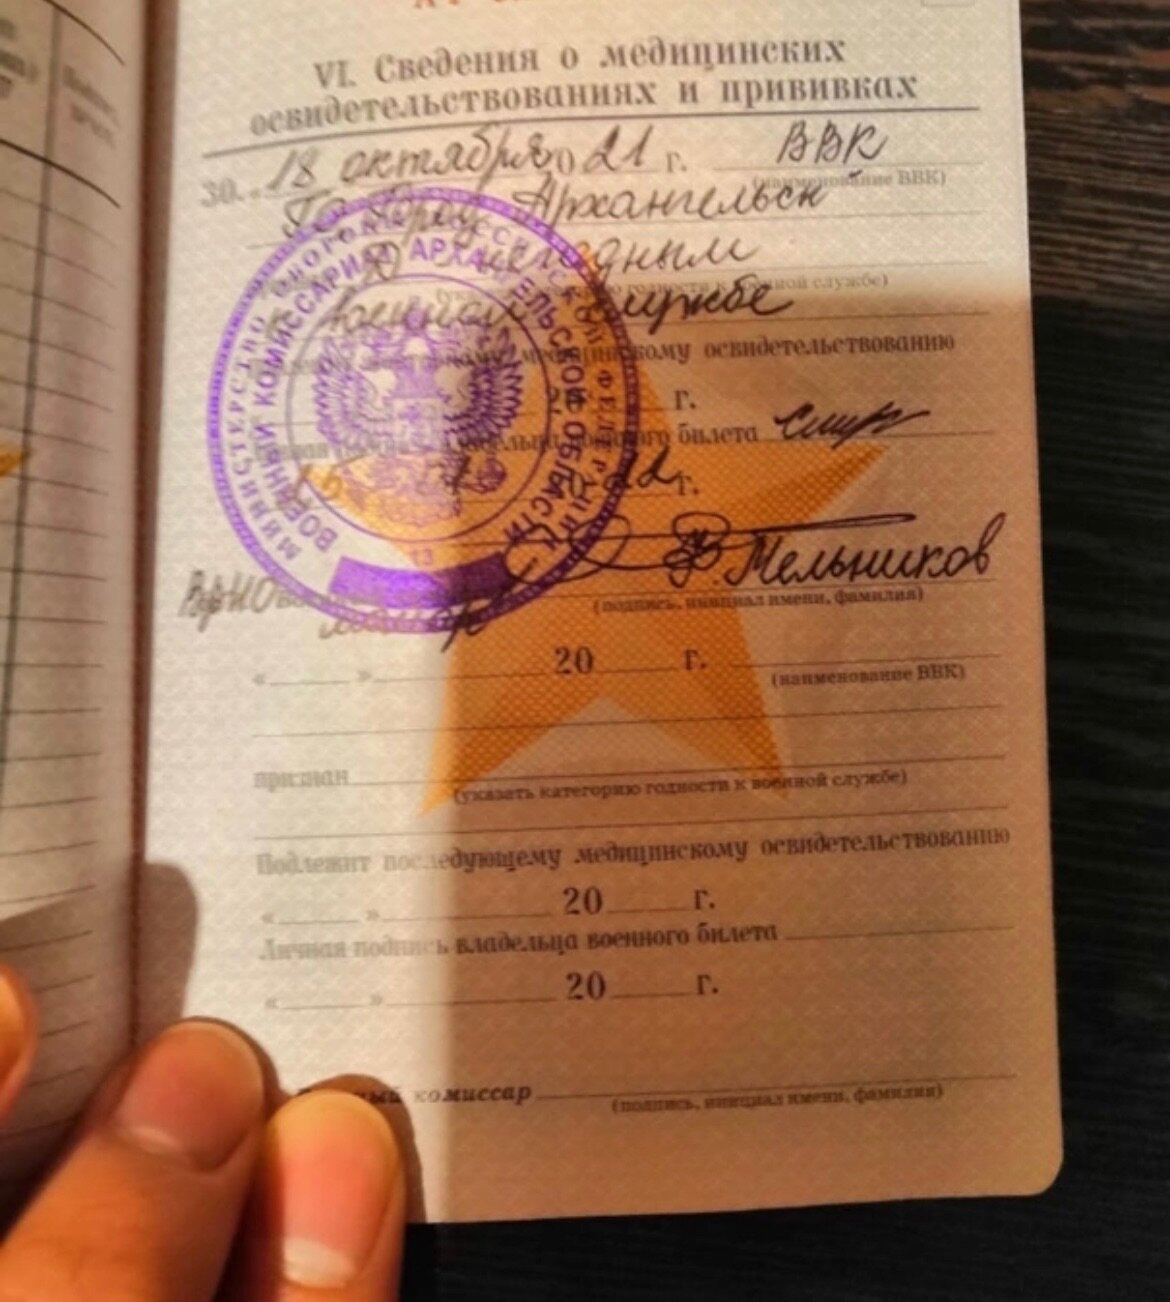 VI. Сведения о медицинских
освидетельствованиях и прививках
30. « 18 октября 20 21 г. ВВК
(наименование ВВК)
ГО город Архангельск
Д негодным
годности к военной службе)
к военной службе
медицинскому освидетельствованию
20 г.
владельца военного билета
22 г.
Ф. Мельников
ВрИО
(подпись, инициал имени, фамилия)
МИНИСТЕРСТВО ОБОРОНЫ РОССИЙСКОЙ ФЕДЕРАЦИИ
ВОЕННЫЙ КОМИССАРИАТ АРХАНГЕЛЬСКОЙ ОБЛАСТИ
13
« » 20 г.
(наименование ВВК)
признан
(указать категорию годности к военной службе)
Подлежит последующему медицинскому освидетельствованию
« » 20 г.
Личная подпись владельца военного билета
« » 20 г.
комиссар
(подпись, инициал имени, фамилия)